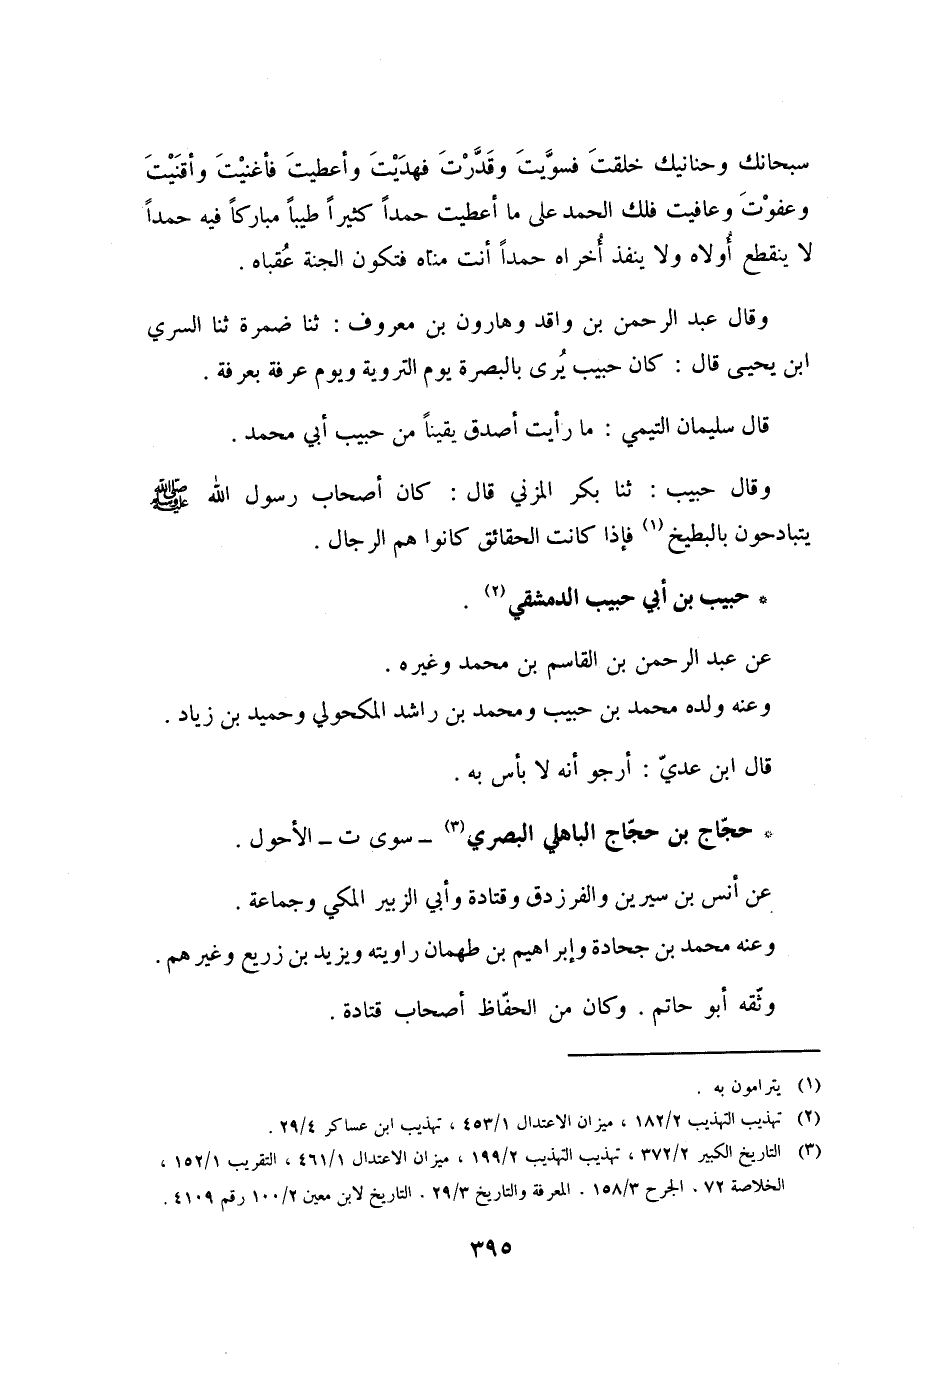 سبحانك وحنانيك خلقتَ فسويَّتَ وقَدَّرْتَ فهدَيْتَ وأعطيتَ فأغنيْتَ وأقنَيْتَ
وعفوْتَ وعافيت فلك الحمد على ما أعطيت حمداً كثيراً طيباً مباركاً فيه حمداً
لا ينقطع أُولاه ولا ينفذ أُخراه حمداً أنت مناه فتكون الجنة عُقباه .
وقال عبد الرحمن بن واقد وهارون بن معروف : ثنا ضمرة ثنا السري
ابن يحيى قال : كان حبيب يُرى بالبصرة يوم التروية ويوم عرفة بعرفة .
قال سليمان التيمي : ما رأيت أصدق يقيناً من حبيب أبي محمد .
وقال حبيب : ثنا بكر المزني قال : كان أصحاب رسول الله ﷺ
يتبادحون بالبطيخ (١) فإذا كانت الحقائق كانوا هم الرجال .
* حبيب بن أبي حبيب الدمشقي (٢) .
عن عبد الرحمن بن القاسم بن محمد وغيره .
وعنه ولده محمد بن حبيب ومحمد بن راشد المكحولي وحميد بن زياد .
قال ابن عديّ : أرجو أنه لا بأس به .
* حجّاج بن حجّاج الباهلي البصري (٣) ــ سوى ت ــ الأحول .
عن أنس بن سيرين والفرزدق وقتادة وأبي الزبير المكي وجماعة .
وعنه محمد بن جحادة وإبراهيم بن طهمان راويته ويزيد بن زريع وغيرهم .
وثّقه أبو حاتم . وكان من الحفّاظ أصحاب قتادة .
(١) يترامون به .
(٢) تهذيب التهذيب ١٨٢/٢ ، ميزان الاعتدال ٤٥٣/١ ، تهذيب ابن عساكر ٢٩/٤ .
(٣) التاريخ الكبير ٣٧٢/٢ ، تهذيب التهذيب ١٩٩/٢ ، ميزان الاعتدال ٤٦١/١ ، التقريب ١٥٢/١ ،
الخلاصة ٧٢ . الجرح ١٥٨/٣ . المعرفة والتاريخ ٢٩/٣ . التاريخ لابن معين ١٠٠/٢ رقم ٤١٠٩ .
٣٩٥